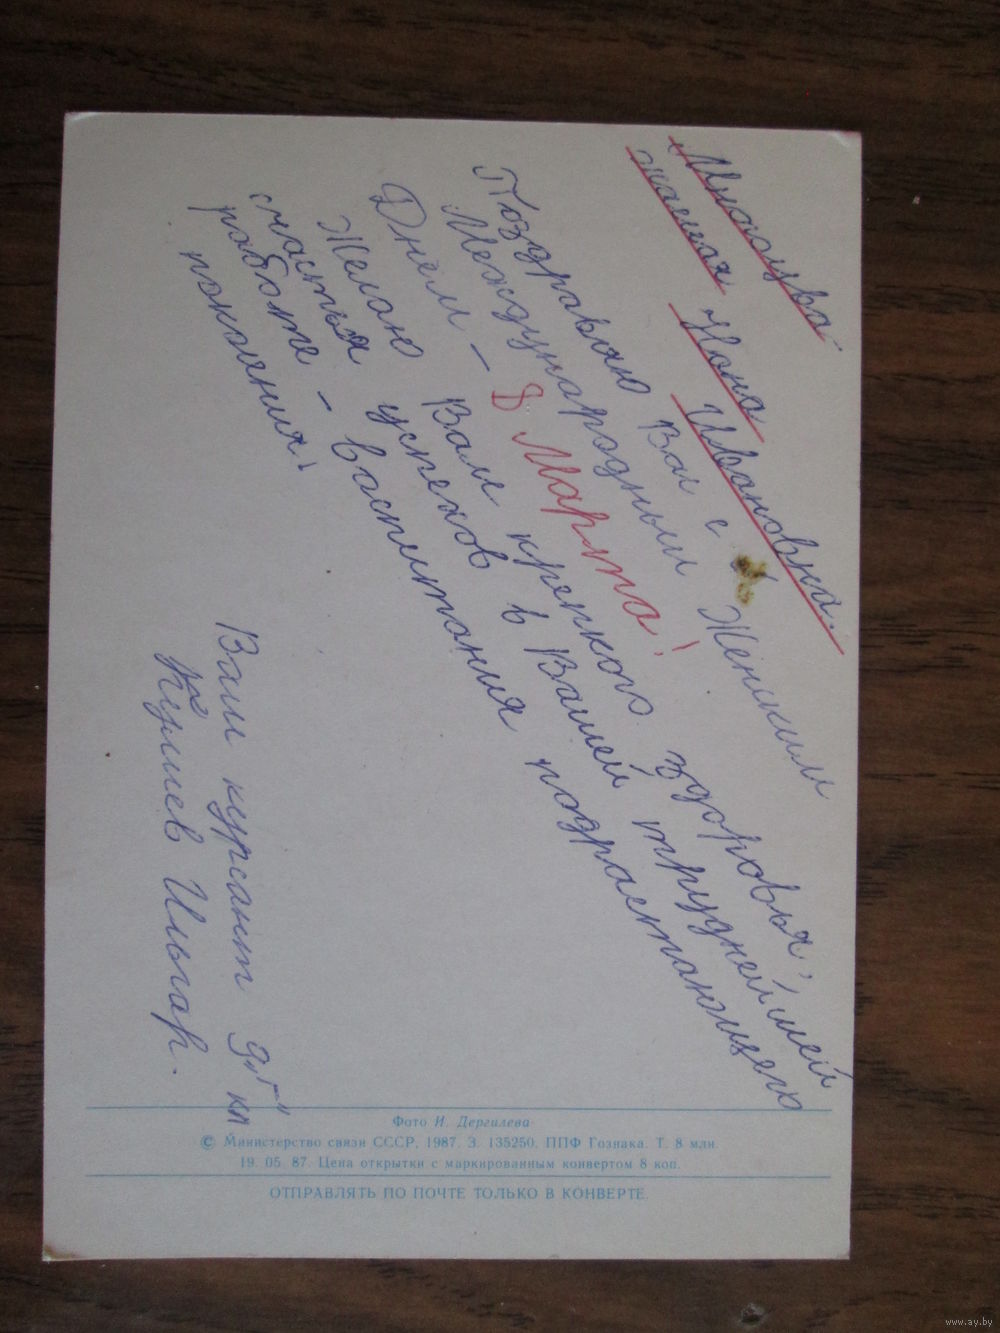 Многоува-
жаемая Нона Ивановна.
Поздравляю Вас с Женским
Международным
Днём - 8 Марта!
Желаю Вам крепкого здоровья,
счастья успехов в Вашей труднейшей
работе - воспитания подрастающего
поколения!
Ваш курсант 9"Г" кл
Керимов Ильгар.
Фото И. Дергилева
© Министерство связи СССР, 1987. З. 135250. ППФ Гознака. Т. 8 млн.
19. 05. 87. Цена открытки с маркированным конвертом 8 коп.
ОТПРАВЛЯТЬ ПО ПОЧТЕ ТОЛЬКО В КОНВЕРТЕ.
www.ay.by